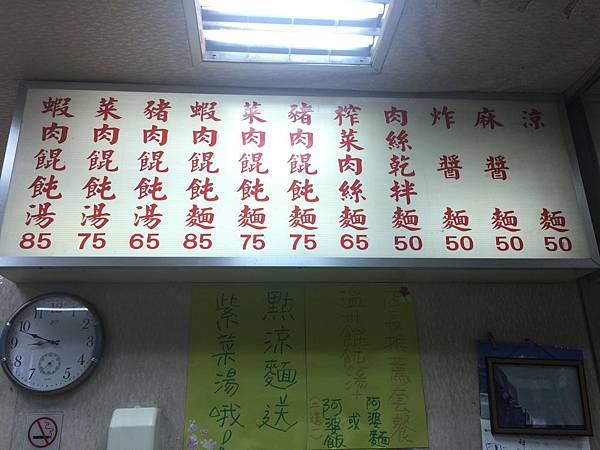 涼麵 50
麻醬麵 50
炸醬麵 50
肉絲乾拌麵 50
榨菜肉絲麵 65
豬肉餛飩麵 75
菜肉餛飩麵 75
蝦肉餛飩麵 85
豬肉餛飩湯 65
菜肉餛飩湯 75
蝦肉餛飩湯 85
店長推薦套餐
溫州餛飩湯+
阿婆麵
或
阿婆飯
(二選一)
點涼麵送
紫菜湯哦!